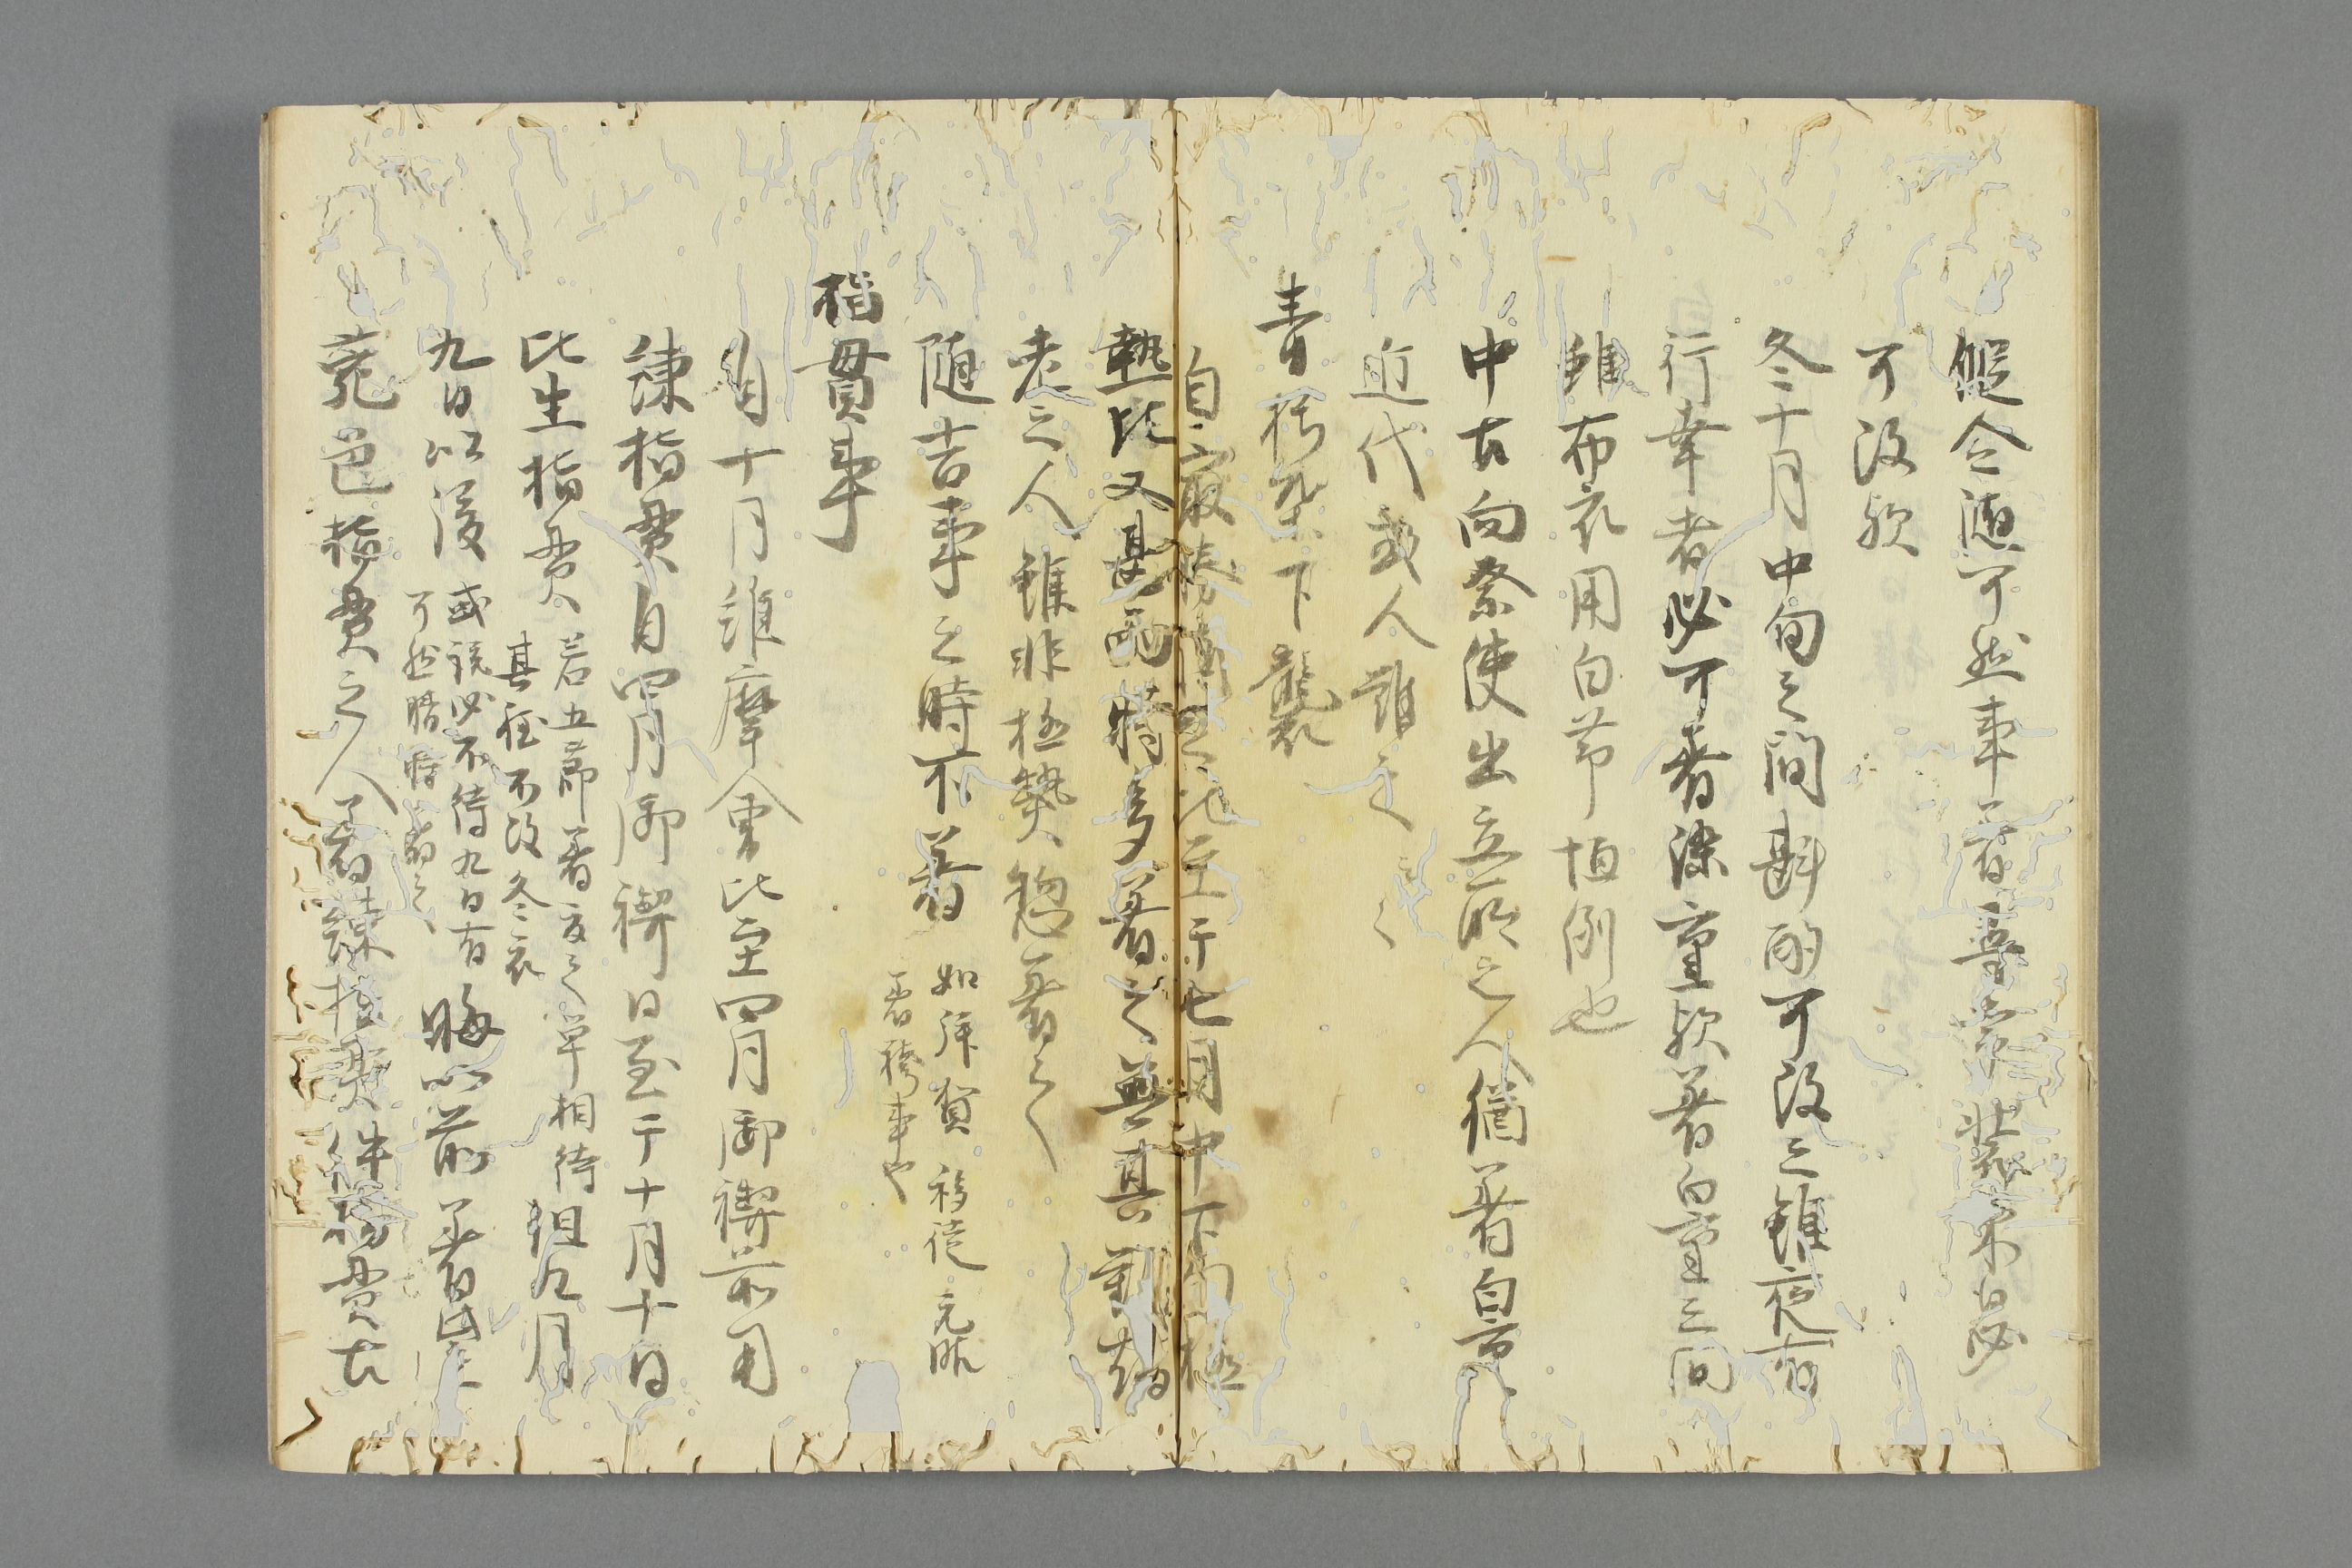 假令随可然事着
可改歟
冬十月中旬之間斟酌可改之雖夜前
行幸者必可着染重歟着白重之同
雖布衣用白帯恒例也
中古向祭使出立所之人猶着白重
近代或人難之
青朽葉下襲
自最勝講比至于七月中下旬極
熱比又甚雨時多着之無其
老之人雖非極熱惣着之
随吉事之時不着
如拝賀移徙元服
着袴事也
指貫事
自十月維摩会比至四月御禊前用
練指貫自四月御禊日至于十月十日
比生指貫
若五節着夏之単相待
其程不改冬衣
但九月
九日以後
或説必不待九日有
可然晴時着之
晦以前着
薄色指貫之人着練指貫件指貫大